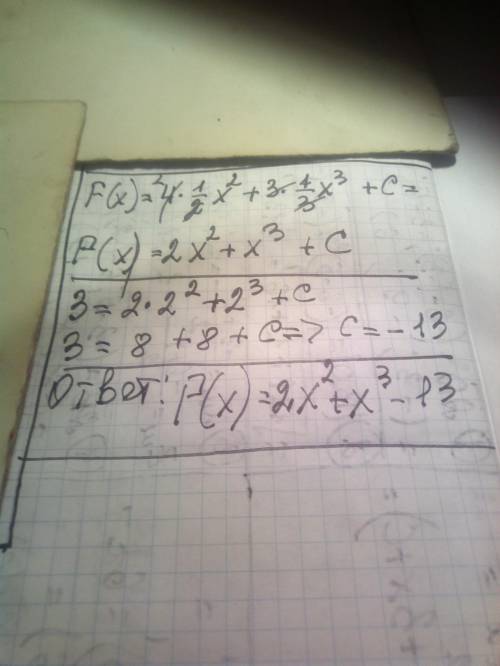 F(x) = 4 · 1/2 x² + 3 · 1/3 x³ + C =
F(x) = 2x² + x³ + C
3 = 2 · 2² + 2³ + C
3 = 8 + 8 + C => C = -13
Ответ: F(x) = 2x² + x³ - 13